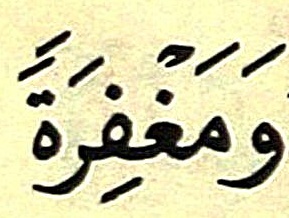 وَمَغْفِرَةً